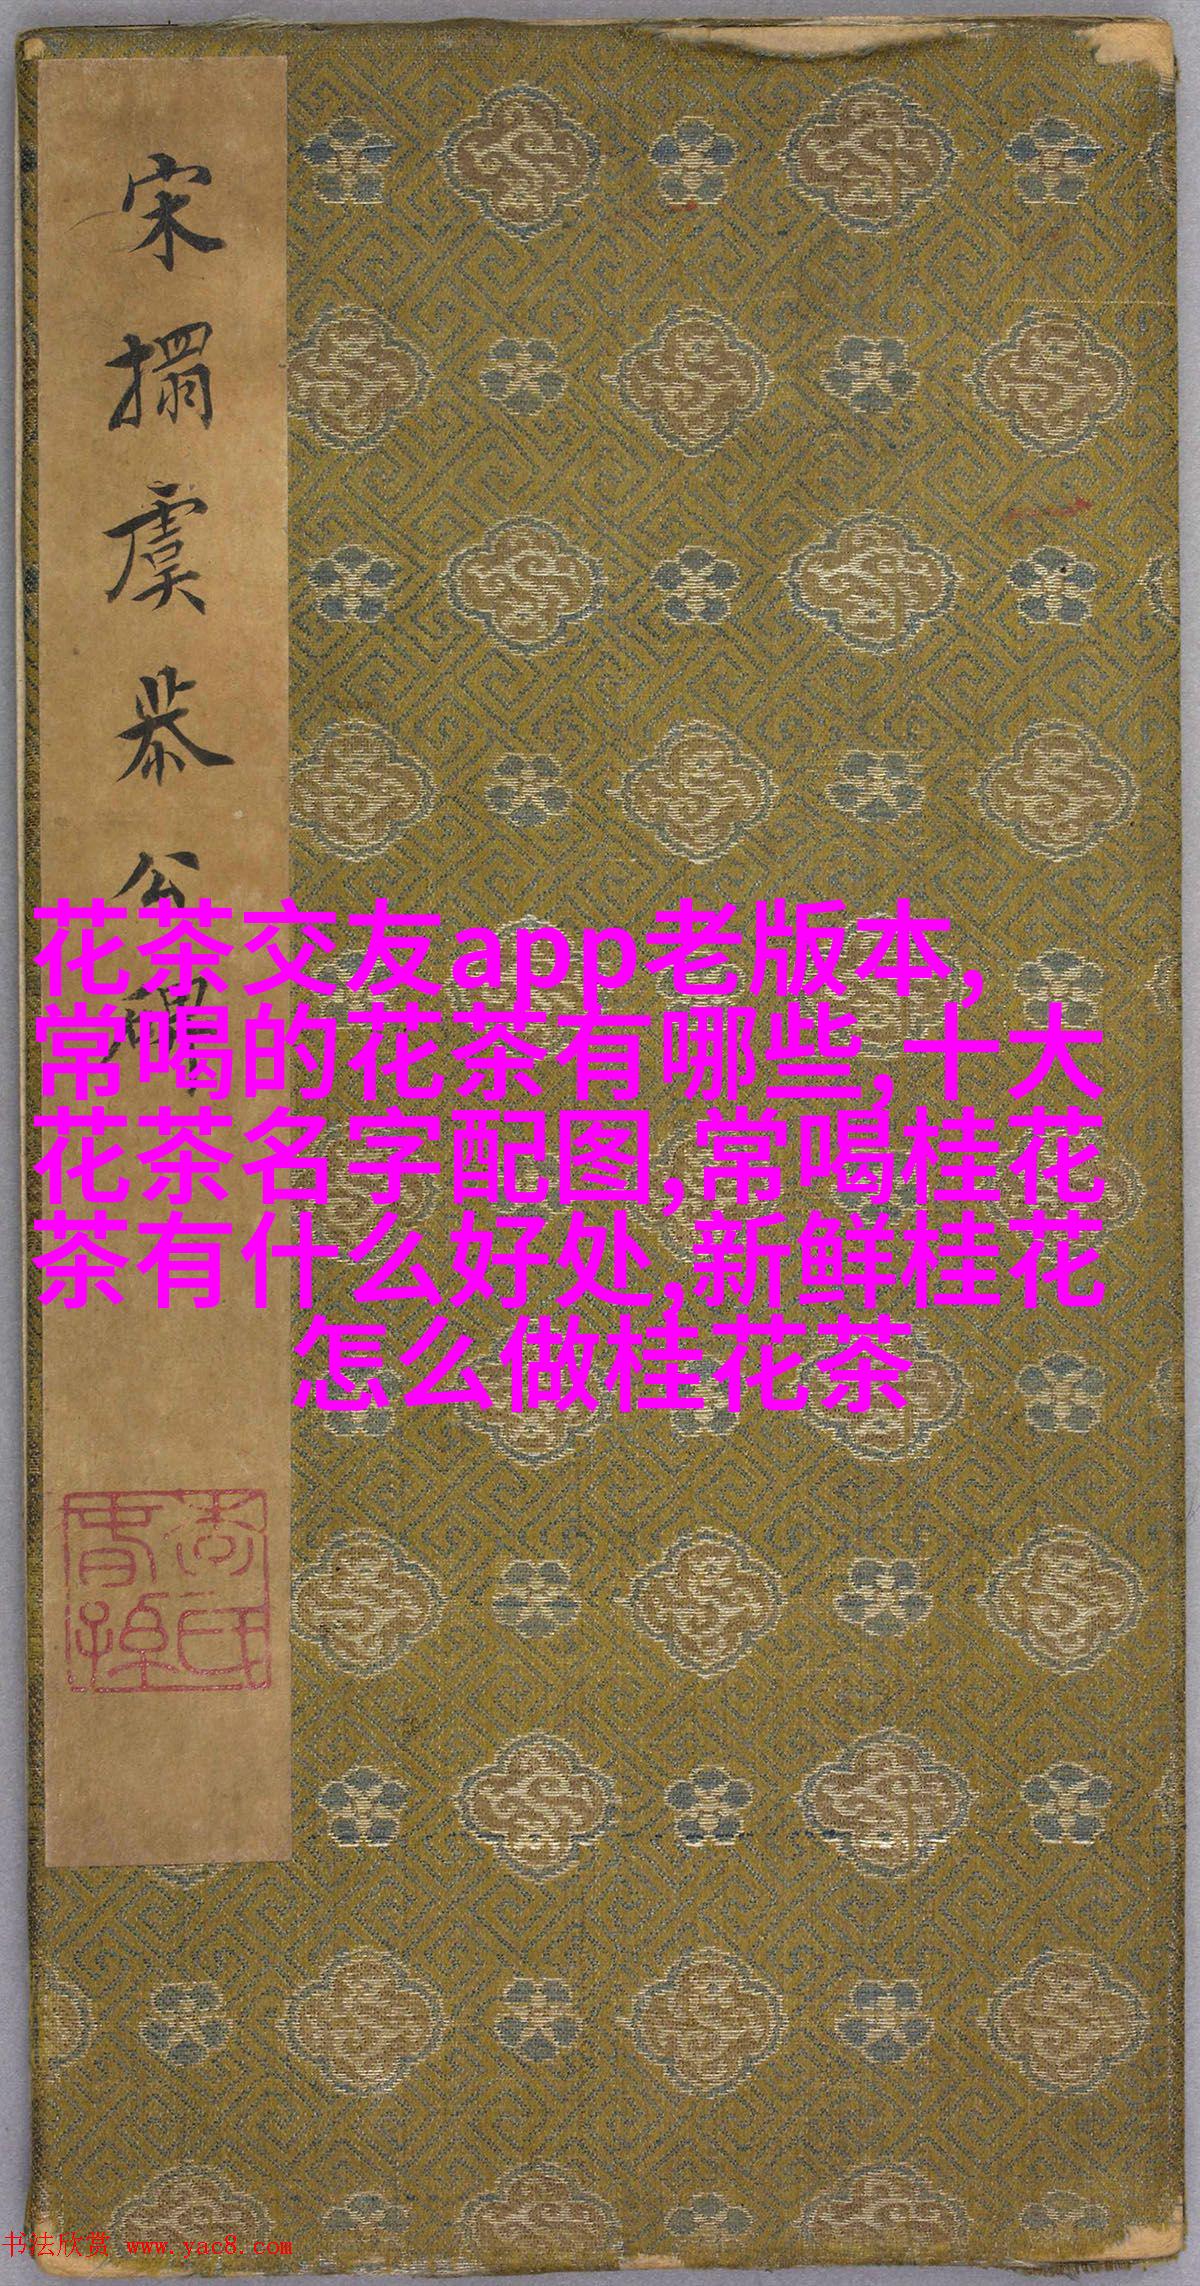 宋搨虞恭公碑
花茶交友app老版本,
常喝的花茶有哪些,十大
花茶名字配图,常喝桂花
茶有什么好处,新鲜桂花
怎么做桂花茶
书法欣赏 www.yac8.com